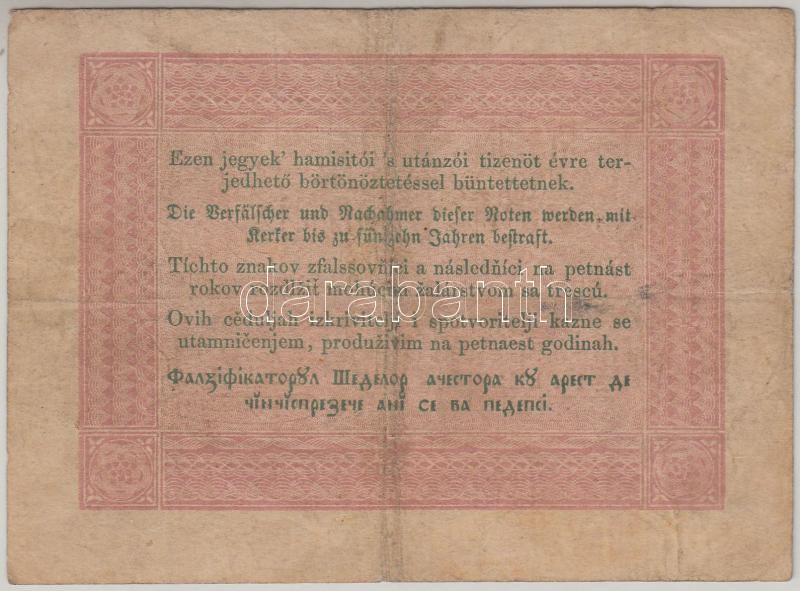 Ezen jegyek' hamisitói 's utánzói tizenöt évre ter-
jedhető börtönöztetéssel büntettetnek.
Die Verfälscher und Nachahmer dieser Noten werden mit
Kerker bis zu fünfzehn Jahren bestraft.
Tíchto znakov zfalssovňíci a následňíci na petnást
rokov rozdlžiť mohúcim žalárstvom sa trescú.
darabanth
Ovih cěduljah izkrivitelji i spotvoritelji kazne se
utamničenjem, produživim na petnaest godinah.
Фалзіфікаторꙋл Шеделор ачестора кꙋ арест де
чінчіспрезече ані се ва педепсі.